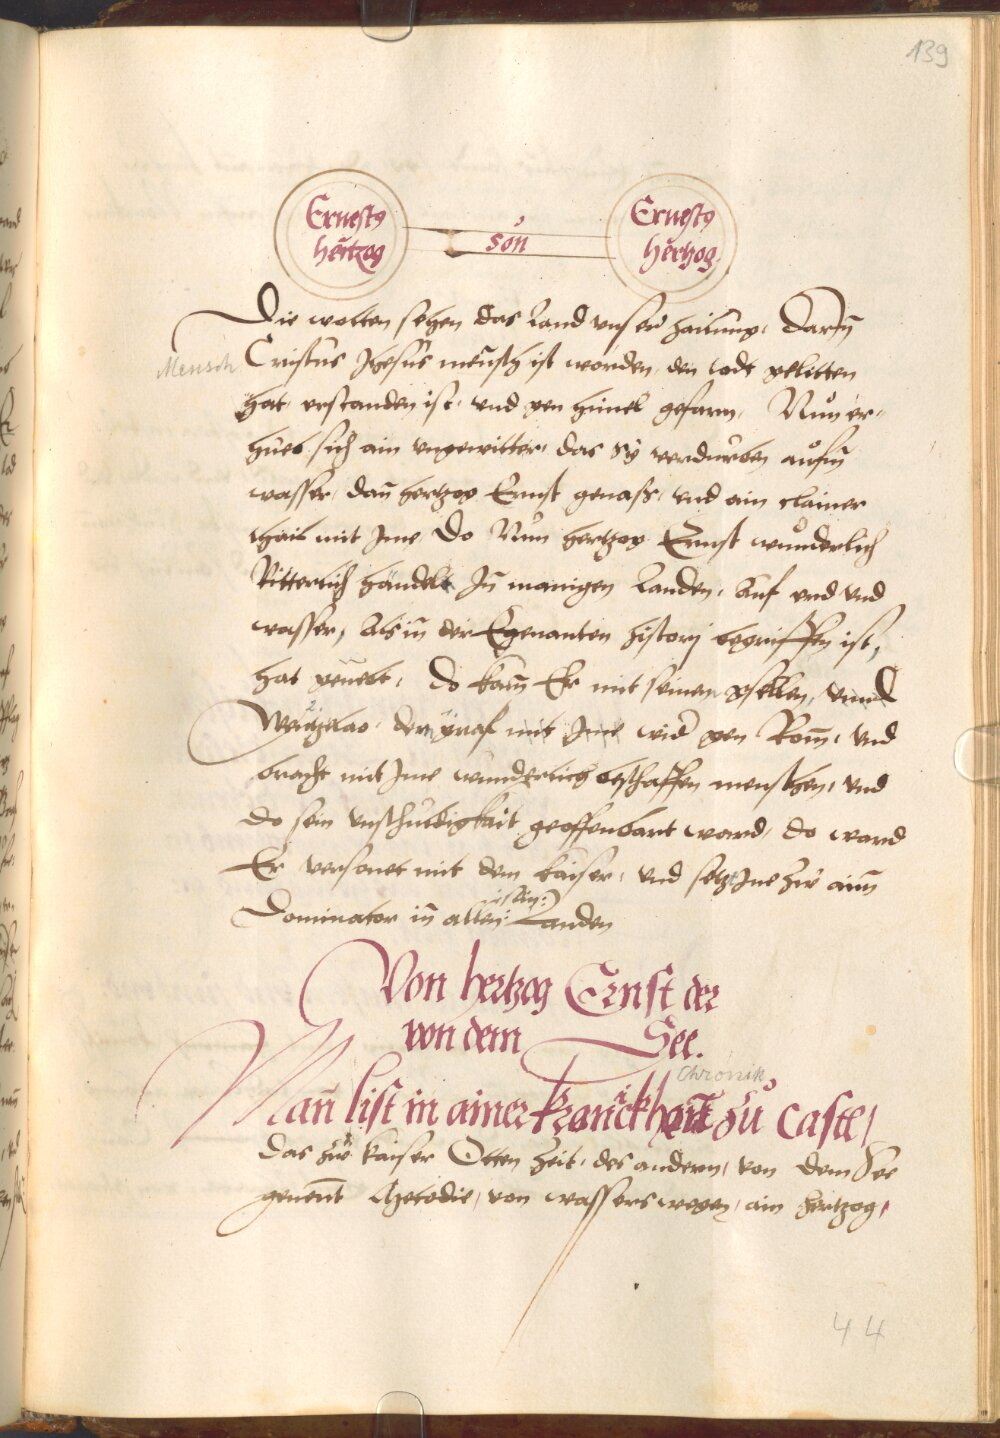 139
Ernestꝰ
hertzog
son
Ernestꝰ
hertzog
Die wolten sehen das Land unser hailung, Darin
Mensch
Cristus Jhesus mensch ist worden, den todt gelitten
hat, erstanden ist, und gen himel gefarn, Nun er-
hueb sich ain ungewitter, das sy verdurben aufm
wasser, dan hertzog Ernst genaß, und ain clainer
thail mit Jme Do Nun hertzog Ernst wunderlich
Ritterlich handelt Jn manigen Landen, Auf erd und
wasser, Als in der Egenanten histori begriffen ist,
hat geuebt, Do kam Er mit seinen gsellen, unnd
der graf mit Jme wid gen Rom, und
bracht mit Jme wunderlich beschaffen menschen, und
do sein unschuldigkait geoffenbart ward, do ward
Er versonet mit dem kaiser, und setzt Jne zu aim
Dominator in allen Landen
Von hertzog Ernst der
von dem See.
Chronik
Man list in ainer kranckhait zu Castel,
das zu kaiser Otten zeit, des andern, von dem See
genent von wassers wegen, ain hertzog,
44